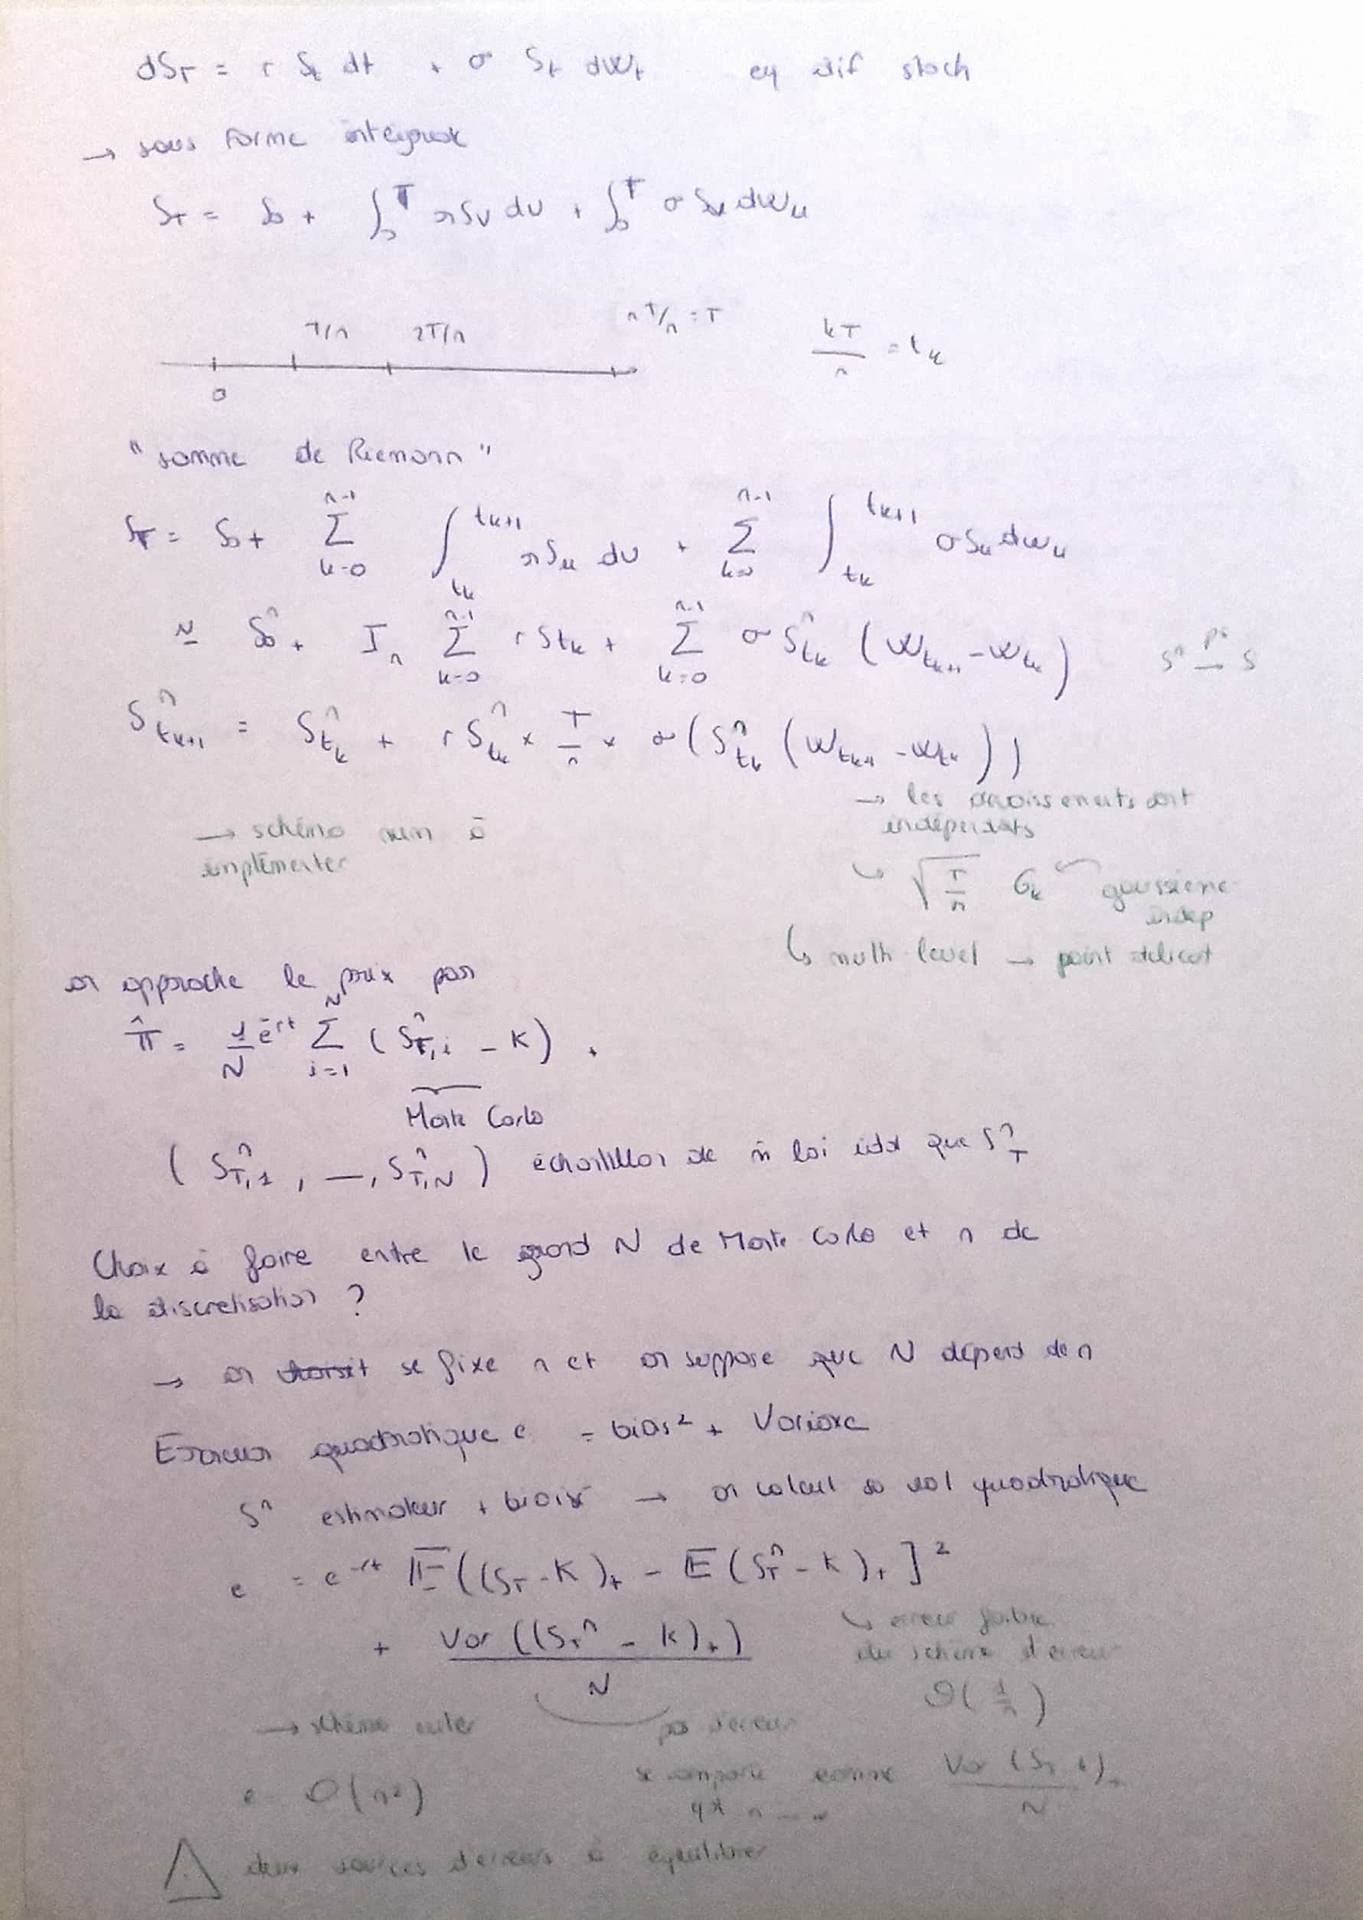 dS_T = r S_t dt + σ S_t dW_t eq dif stoch
→ sous forme integrale
S_T = S_0 + ∫_0^T r S_u du + ∫_0^T σ S_u dW_u
T/n 2T/n nT/n = T kT/n = t_k
0
"somme de Riemann"
S_T = S_0 + Σ_{k=0}^{n-1} ∫_{t_k}^{t_{k+1}} r S_u du + Σ_{k=0}^{n-1} ∫_{t_k}^{t_{k+1}} σ S_u dW_u
≃ S_0^n + T/n Σ_{k=0}^{n-1} r S_{t_k} + Σ_{k=0}^{n-1} σ S_{t_k}^n (W_{t_{k+1}} - W_{t_k}) S^n → S
S_{t_{k+1}}^n = S_{t_k}^n + r S_{t_k}^n × T/n × σ(S_{t_k}^n (W_{t_{k+1}} - W_{t_k}))
→ les accroissements sont
indépendants
→ schéma num à
implémenter
↳ √(T/n) G_k gaussienne
indep
↳ multi level → point délicat
on approche le prix par
π̂ = 1/N e^{-rt} Σ_{i=1}^N (S_{T,i}^n - K)_+
Monte Carlo
(S_{T,1}^n, —, S_{T,N}^n) échantillon de m̂ loi iid que S_T^n
Choix à faire entre le grand N de Monte Carlo et n de
la discretisation ?
→ on se fixe n et on suppose que N dépend de n
Erreur quadratique e = bias² + Variance
S^n estimateur + biaisé → on calcul sa val quadratique
e = e^{-rt} E((S_T - K)_+ - E(S_T^n - K)_+]²
+ Var((S_T^n - K)_+) / N
↳ erreur faible
du schéma d'erreur
O(1/n)
→ schéma euler
pas d'erreur
se comporte comme Var(S_T - K)_+ / N
e O(n²)
deux sources d'erreurs à équilibrer